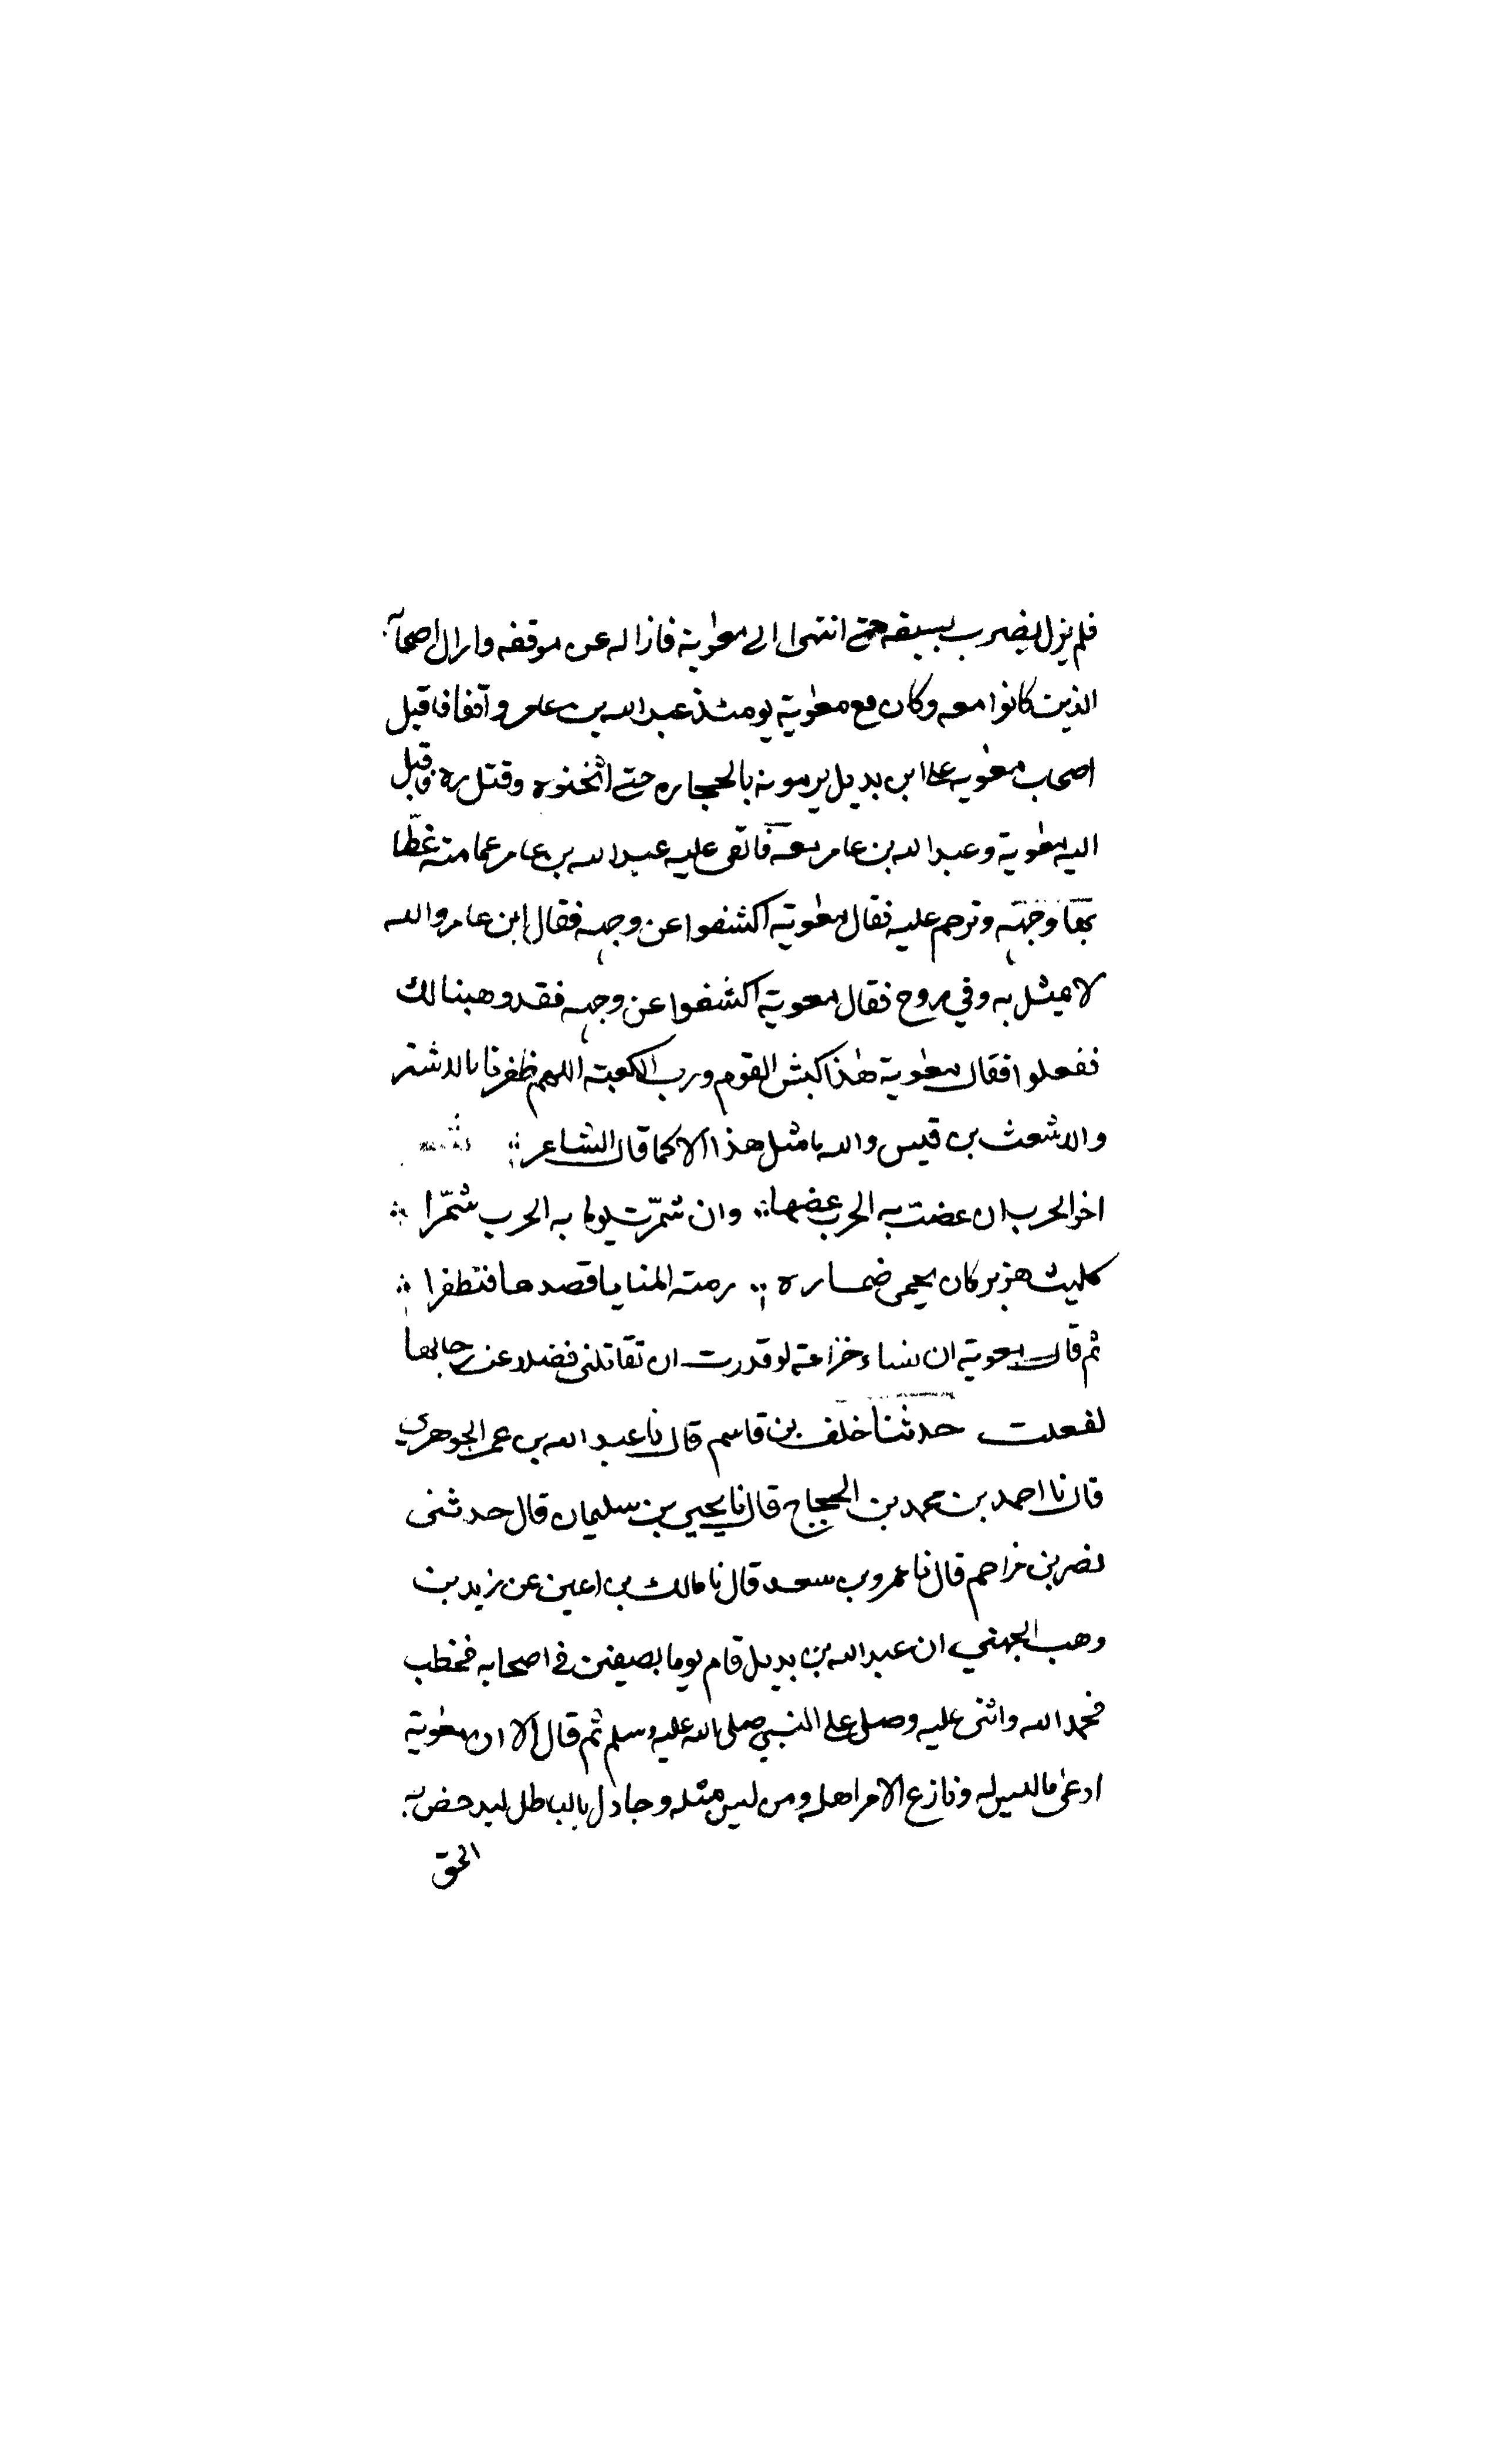 فلم يزل يضرب بسيفه حتى انتهى الى معٰوية فازاله عن موقفه وازال اصحابه
الذين كانوا معه وكان مع معٰوية يومئذ عبد الله بن عامر واقفا فاقبل
اصحاب معٰويه على ابن بديل يرمونه بالحجاره حتى اثخنوه وقتل ره فاقبل
اليه معٰوية وعبد الله بن عامر معه فالقى عليه عبد الله بن عامر عمامته غطّا
بها وجهه وترحم عليه فقال معٰوية اكشفوا عن وجهه فقال ابن عامر والله
لا يمثل به وفي روح فقال معوية اكشفوا عن وجهه فقد وهبنا لك
ففعلوا فقال معٰوية هٰذا كبش القوم ورب الكعبة اللهم ظفرنا بالاشتر
والاشعث بن قيس والله ما مثل هذا الا كما قال الشاعر
اخو الحرب ان عضت به الحرب عضها وان شمّرت يوما به الحرب شمّرا
كليث هزبر كان يحمى ضماره رمته المنايا قصدها فتطفرا
ثم قال معوية ان نساء خزاعة لو قدرت ان تقاتلنى فضلا عن رجالها
لفعلت حدثنا خلف بن قاسم قال نا عبد الله بن عمر الجوهري
قال نا احمد بن محمد بن الحجاج قال نا يحيي بن سليمان قال حدثنى
نصر بن مزاحم قال نا عمرو بن سعد قال نا مالك بن اعين عن زيد بن
وهب الجهني ان عبد الله بن بديل قام يوما بصيفين فى اصحابه فخطب
فحمد الله واثنى عليه وصلى على النبي صلى الله عليه وسلم ثم قال الا ان معٰوية
ادعىٰ ما ليس له ونازع الامر اهله ومن ليس مثله وجادل بالباطل ليدحض به
الحق